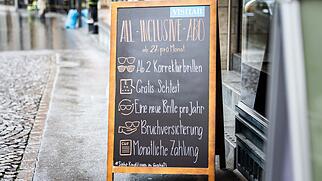 VISILAB
ALL-INCLUSIVE-ABO
ab 27.- pro Monat
Ab 2 Korrekturbrillen
Gratis Sehtest
Eine neue Brille pro Jahr
Bruchversicherung
Monatliche Zahlung